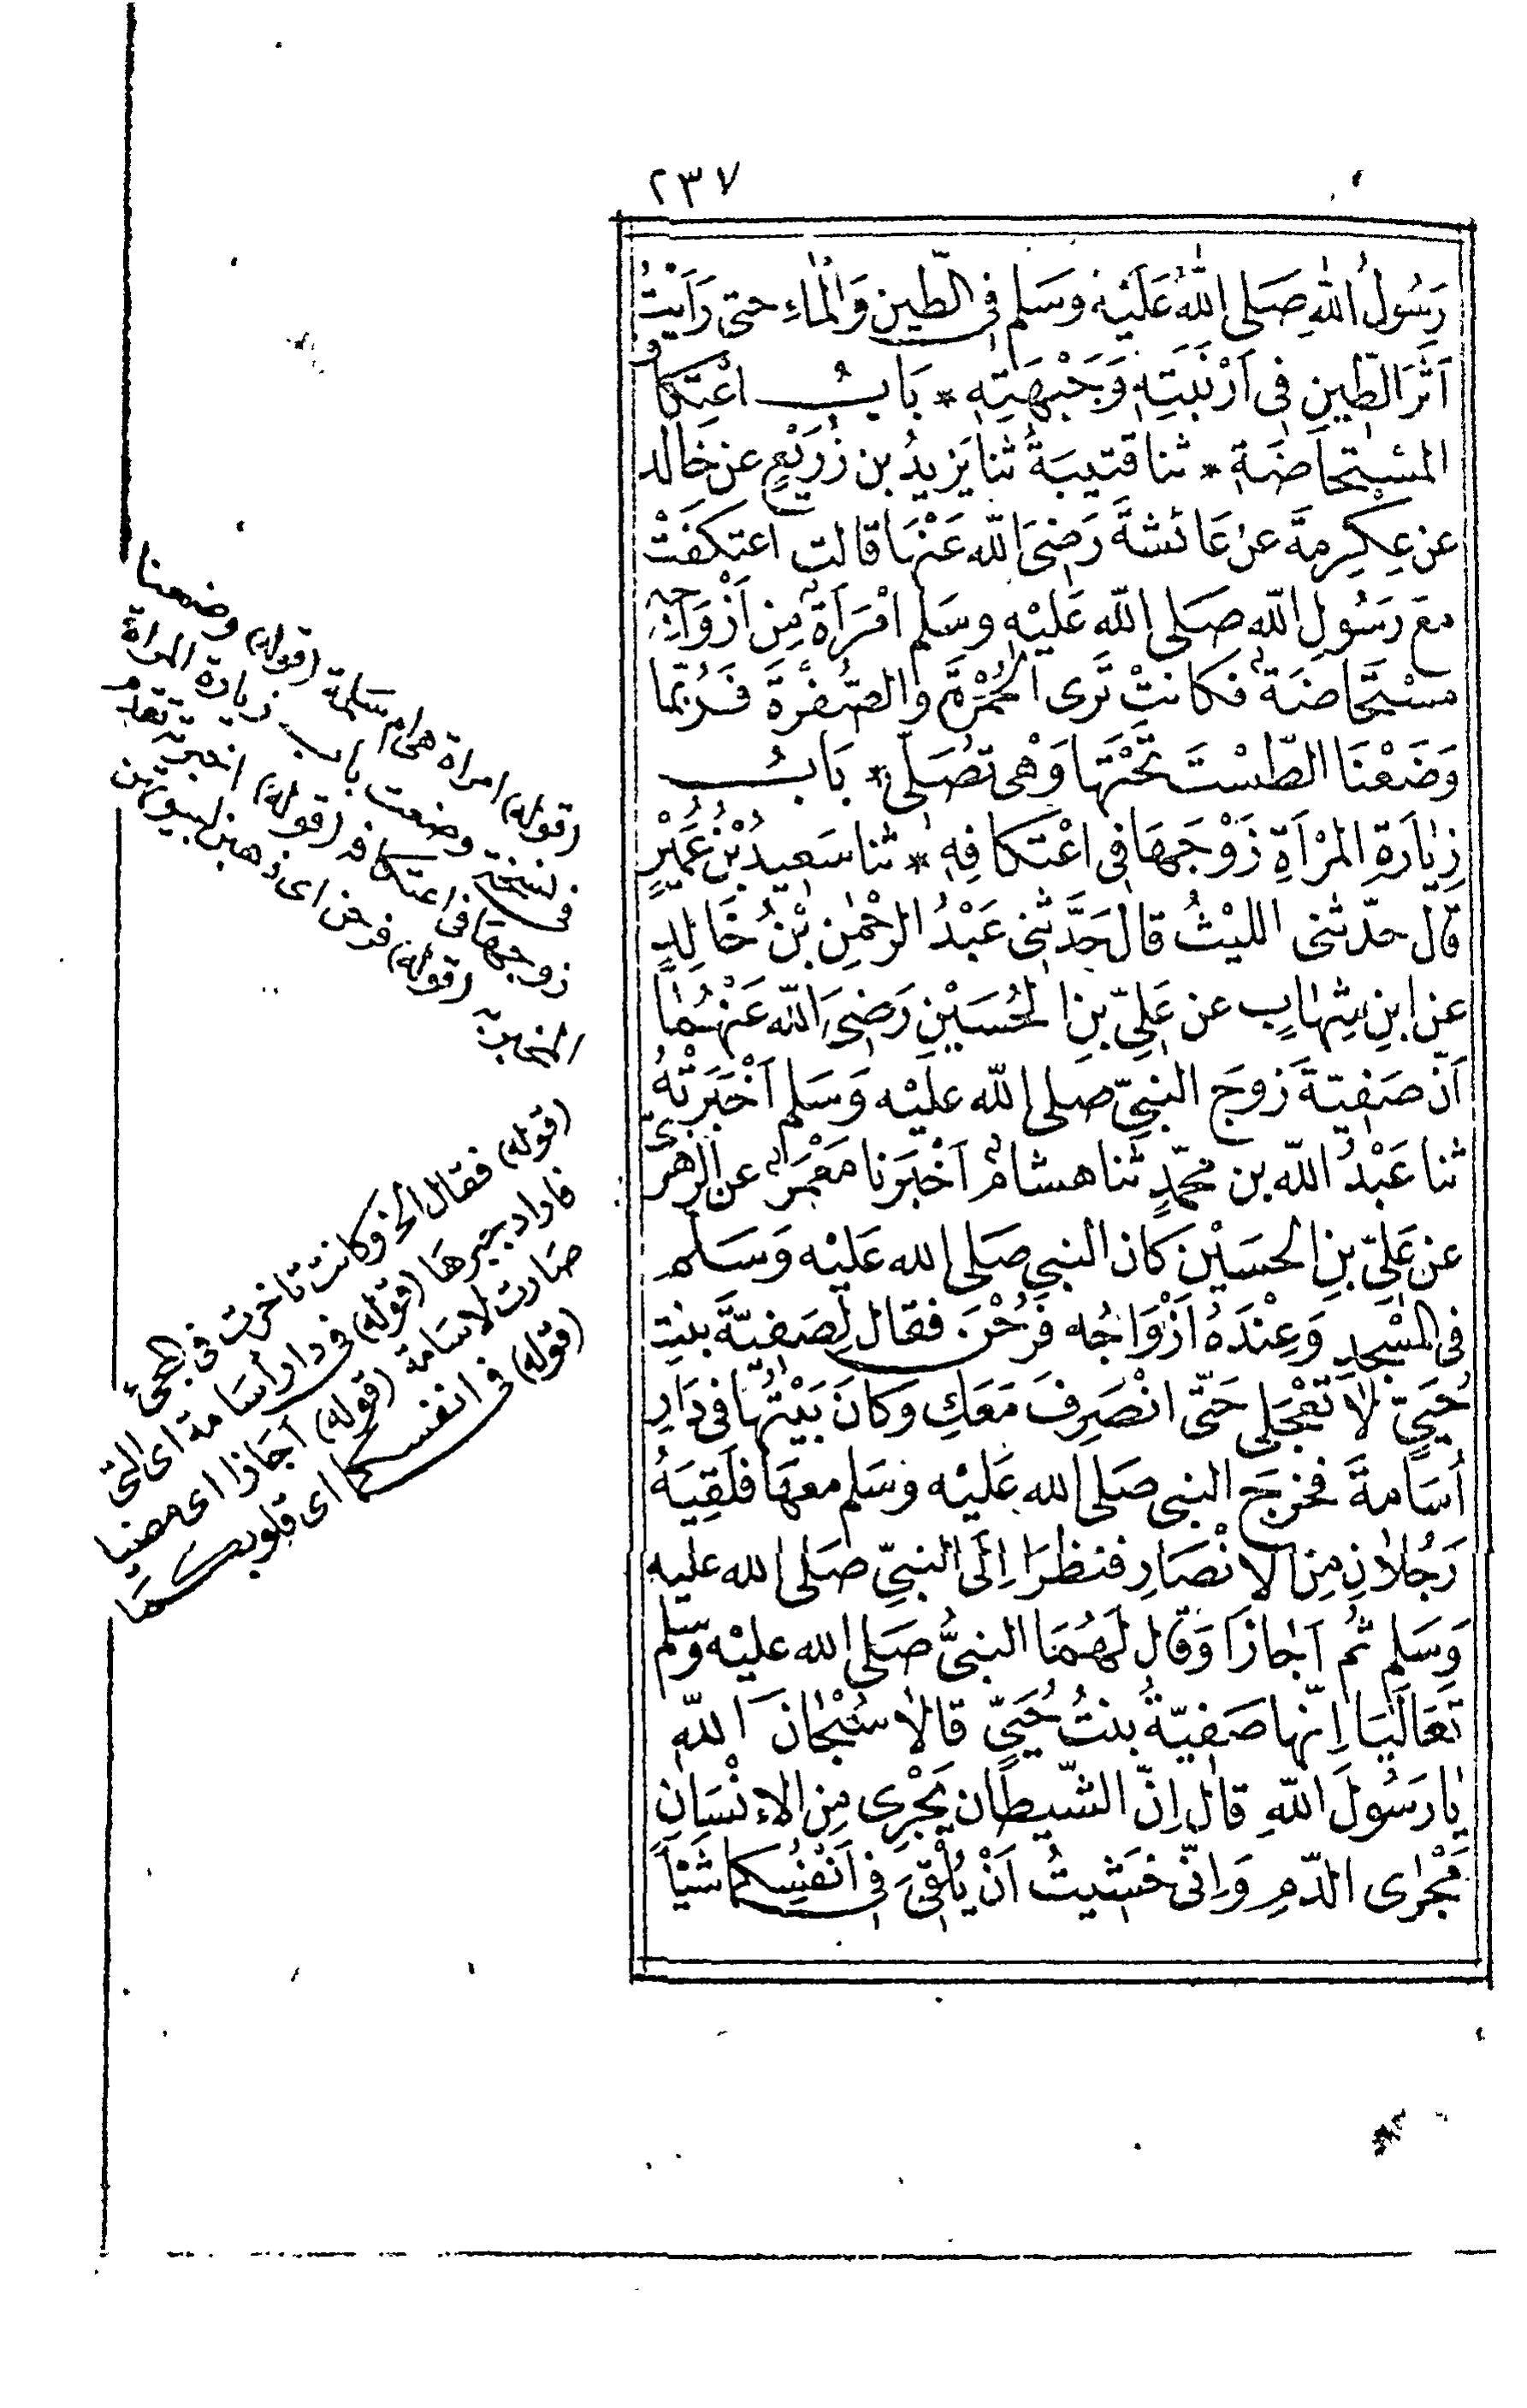 ٢٣٧
رَسُولُ اللهِ صَلى اللهُ عَلَيْهِ وَسَلم فى الطِّينِ وَالْمَاءِ حتى رَاَيْتُ
اَثَرَ الطِّينِ فِى اَرْنَبَتِهِ وَجَبْهَتِهِ * بَابُ اعْتِكَافِ
المسْتحَاضَةِ * ثنا قتيبَةُ ثنا يَزِيدُ بن زُرَيْعٍ عن خَالد
عن عِكِرِمةَ عن عَائشةَ رَضىَ الله عَنْهَا قالت اعتكَفَتْ
معَ رَسُولِ الله صَلى الله عَليْهِ وسَلم امْرَاَةٌ مِن اَزْوَاجِهِ
مسْتَحَاضَةٌ فكانتْ تَرى الحُمْرَةَ والصُّفْرَةَ فَرُبَّمَا
وَضَعْنَا الطّسْتَ تَحْتَهَا وَهْى تصَلى * بَابُ
زِيَارَةِ المرْاَةِ زَوْجَهَا فى اعْتكافِهِ * ثنا سَعِيدُ بْنُ عُمَيْرٍ
قال حدّثنى الليْثُ قال حَدَّثنِى عَبْدُ الرحْمٰنِ بْنُ خَالِدٍ
عن ابنِ شِهَابٍ عن عَلِىّ بنِ الحُسَيْنِ رَضِىَ الله عَنْهُمَا
اَنّ صَفِيّةَ زوجَ النبىّ صلى الله عليْه وَسَلم اَخْبَرَتْهُ
ثنا عَبْدُ الله بن محمّدٍ ثنا هشامٌ اَخْبَرنا مَعْمَرٌ عن الزهْرىّ
عن عَلِىّ بنِ الحسَيْنِ كَان النبى صَلى الله عَليْه وَسَلم
فى المسْجدِ وَعِنْدَهُ اَزْوَاجُه فَرُحْنَ فقال لِصَفِيّةَ بنتِ
حُيَىّ لاَ تَعْجَلى حَتّى انْصَرِفَ مَعَكِ وَكانَ بَيْتُهَا فى دَارِ
اُسَامةَ فخرَجَ النبى صَلى الله عَليْه وسَلم معهَا فلَقِيَهُ
رَجُلاَنِ مِنَ الانْصَارِ فنظرَا اِلَى النبىِّ صَلى الله عليه
وَسَلم ثُم اَجَازَا وَقَال لَهُمَا النبىُّ صَلى الله عليْه وَسّلم
تَعَالَيَا اِنّها صَفِيّةُ بنتُ حُيَىٍّ قالاَ سُبْحَانَ اللّٰهِ
يا رَسُولَ اللّٰهِ قال اِنّ الشّيطان يَجْرِى مِن الاِنْسَانِ
مَجْرَى الدّمِ وَاِنّى خَشيتُ اَنْ يُلْقِىَ فى اَنْفُسِكما شَيْاً
(قوله) امراة هى ام سَلمة (قوله) وضعنا
فى نسخة وضعت باب زيارة المراة
زوجها فى اعتكافه (قوله) اخبرته تقدم
(قوله) فرحن اى ذهبن لبيوتهن
(قوله) فقال الخ وكانت تاخرت فى المجئ
(قوله) فى دار اُسَامة اى التى
صَارت لاسَامة (قوله) اجَازا اى مضيا
(قوله) فى انفسكما اى قلوبكما